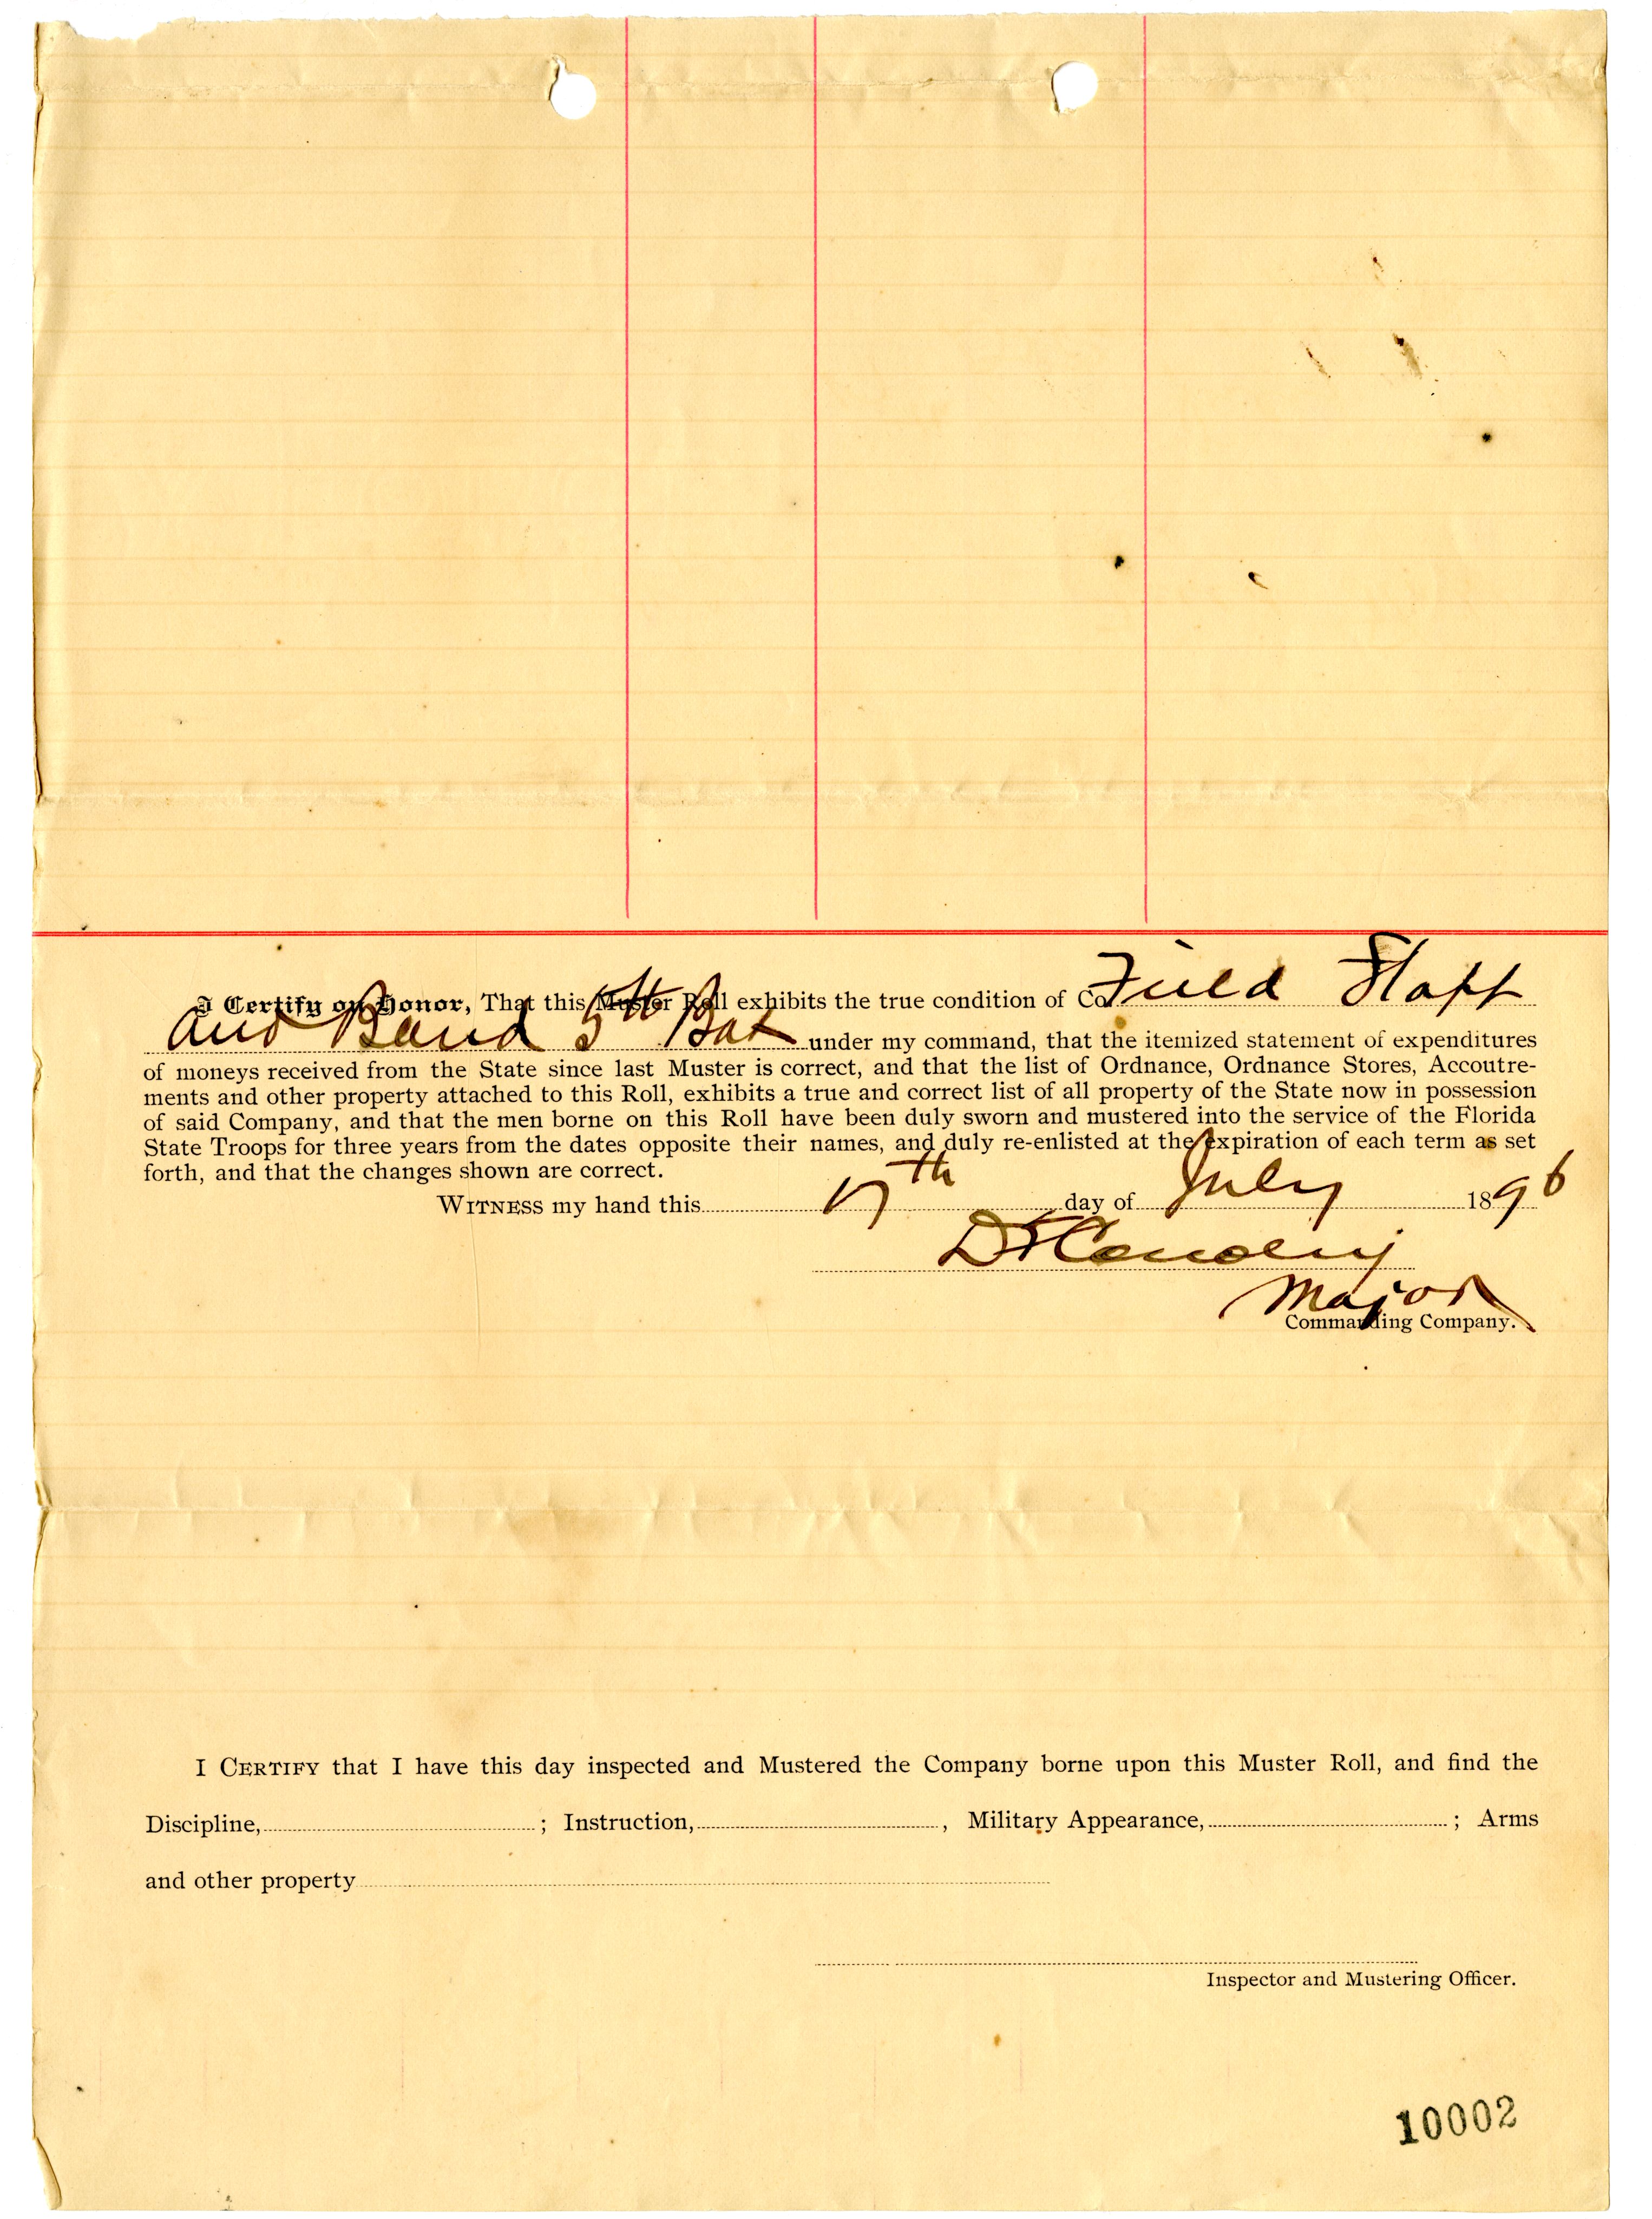 I Certify on Honor, That this Muster Roll exhibits the true condition of Co. Field Staff
and Band 5th Bat under my command, that the itemized statement of expenditures
of moneys received from the State since last Muster is correct, and that the list of Ordnance, Ordnance Stores, Accoutre-
ments and other property attached to this Roll, exhibits a true and correct list of all property of the State now in possession
of said Company, and that the men borne on this Roll have been duly sworn and mustered into the service of the Florida
State Troops for three years from the dates opposite their names, and duly re-enlisted at the expiration of each term as set
forth, and that the changes shown are correct.
WITNESS my hand this 17th day of July 1896
Major
Commanding Company.
I CERTIFY that I have this day inspected and Mustered the Company borne upon this Muster Roll, and find the
Discipline, ; Instruction, , Military Appearance, ; Arms
and other property
Inspector and Mustering Officer.
10002